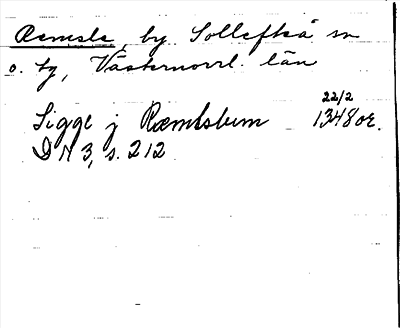 Remsle, by, Sollefteå sn
o. tg, Västernorrl. län
22/2
Sigge j Ræmslsbum 1348 or.
D N 3, s. 212